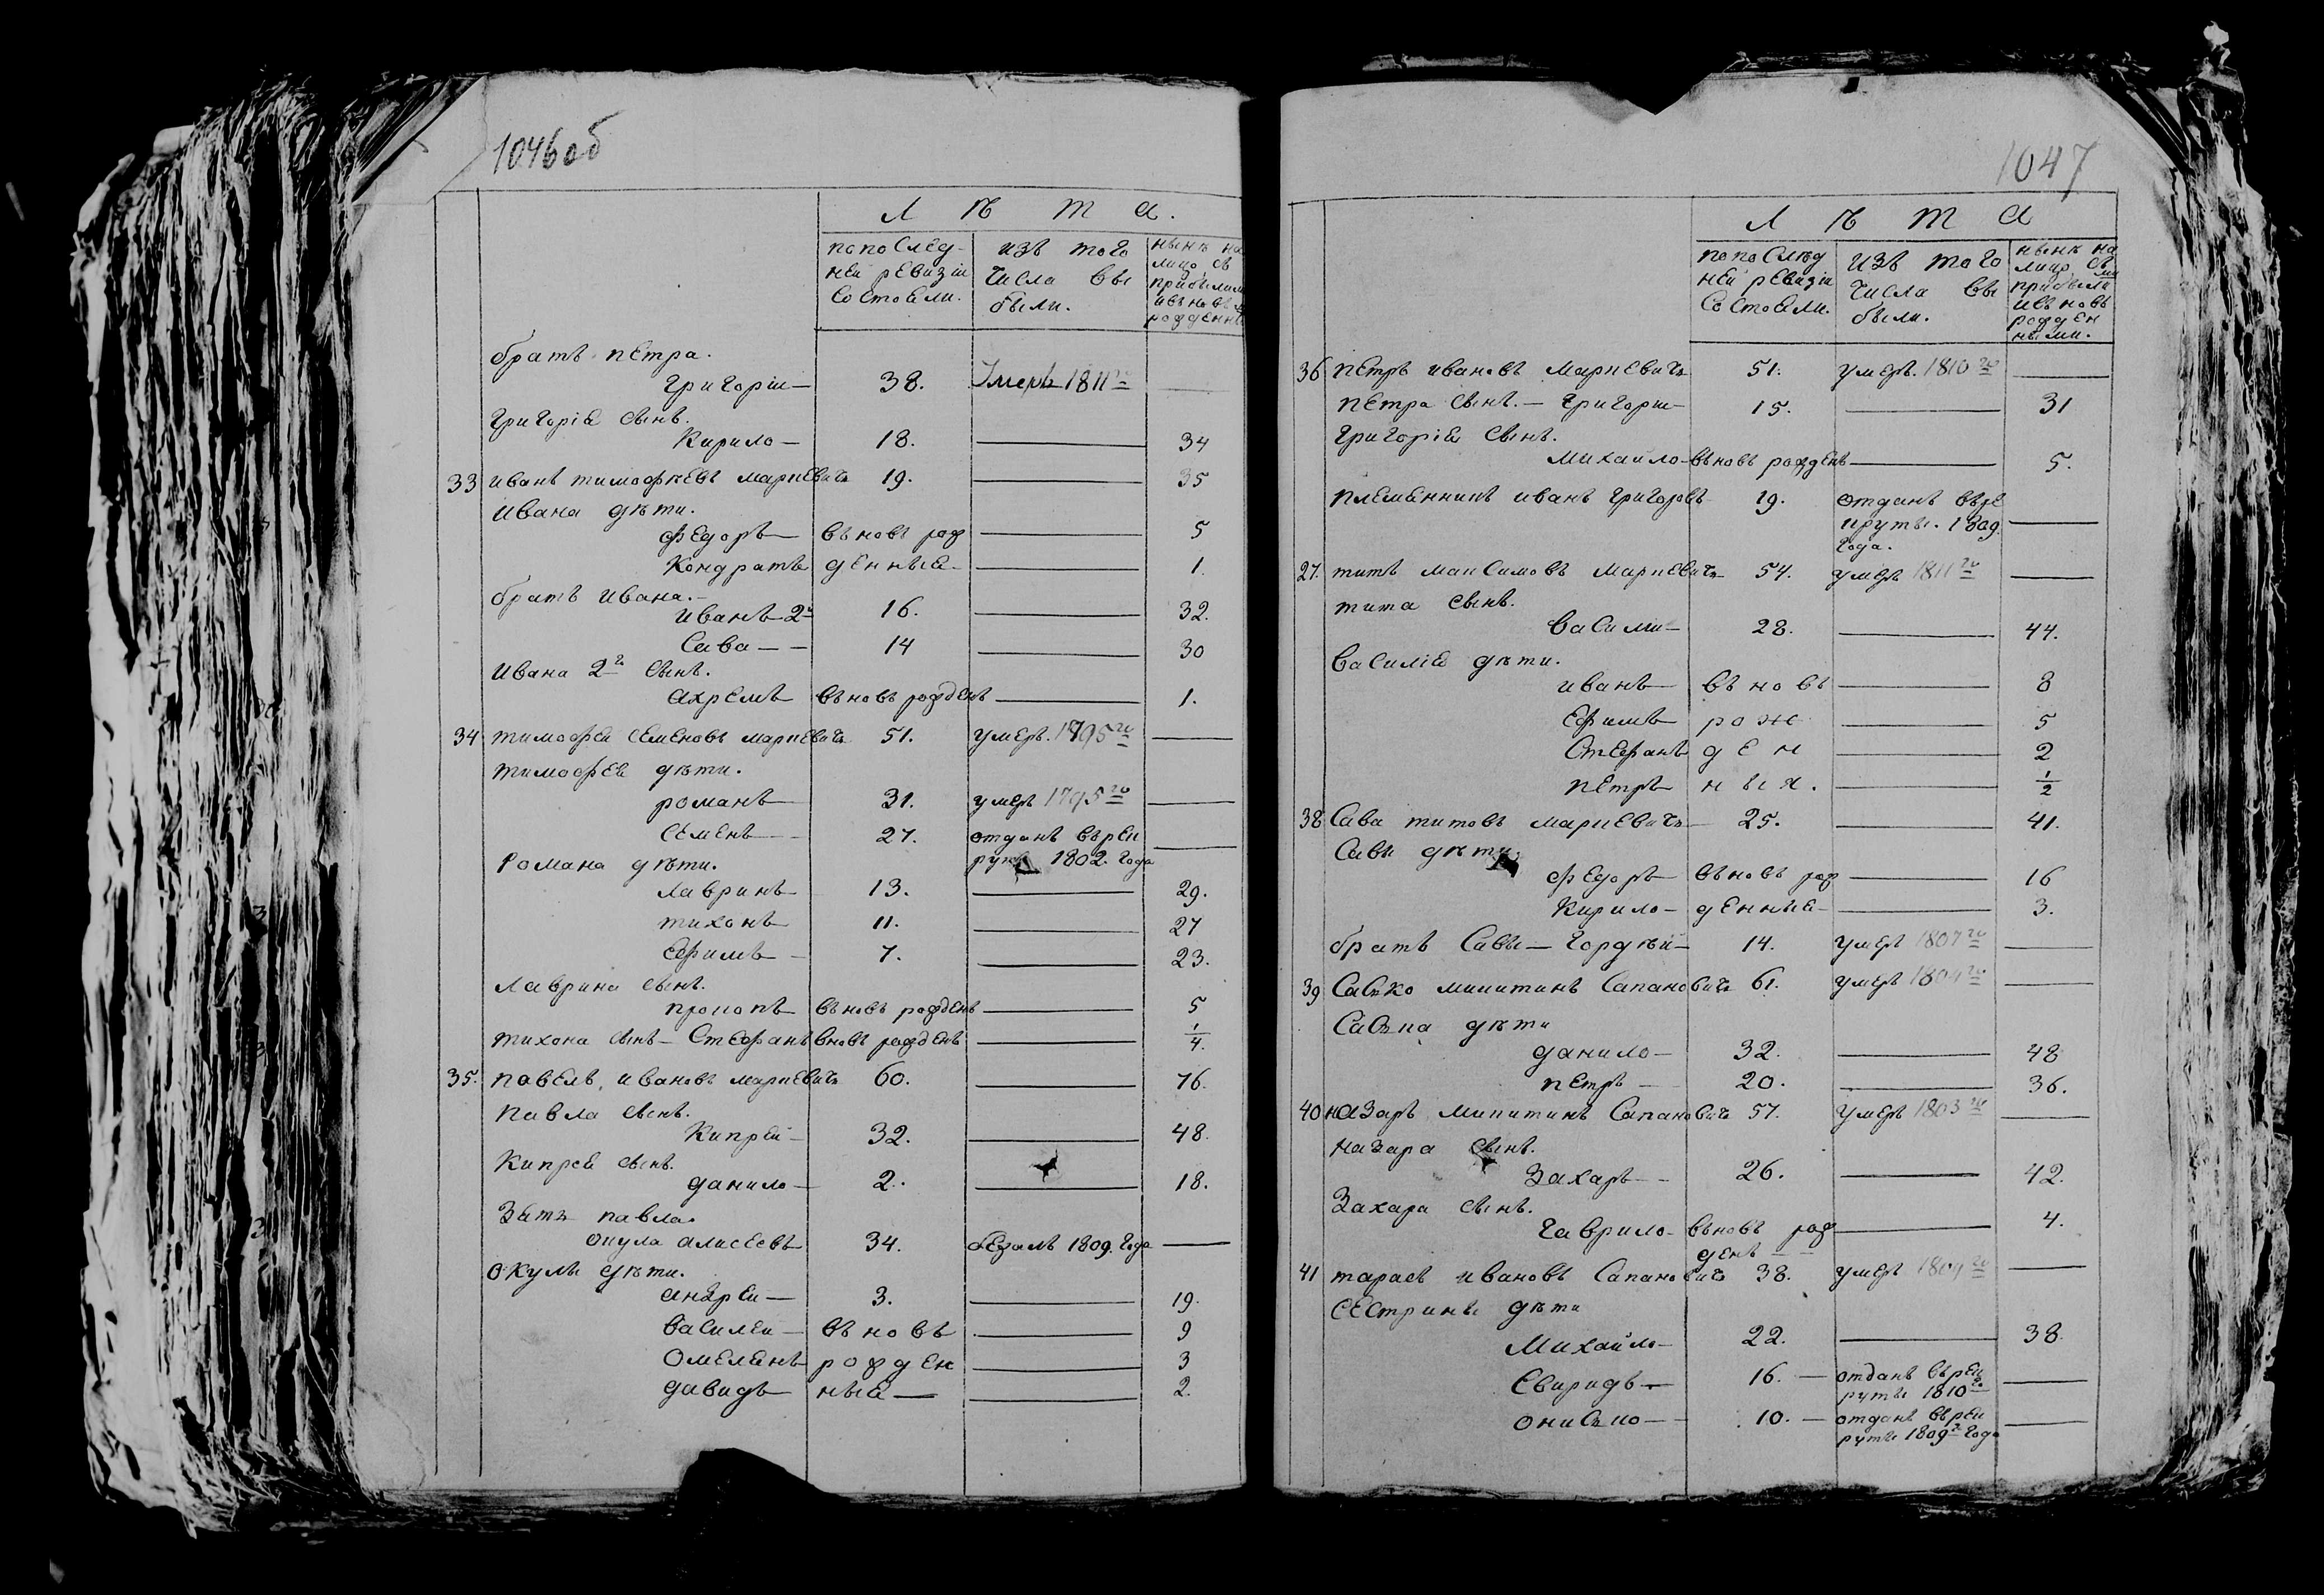 1046об
Л ѣ т а.
по послед-
ней ревизіи
состояли.
изъ того
числа вы
были.
нынѣ на
лицо съ
прибылыми
и вь новь
рожденн
братъ петра.
григоріи — 38. Умеръ 1811го —
григорія сынъ.
Кирило — 18. — 34
33 иванъ тимофѣевъ маркевичъ 19. — 35
ивана дѣти.
федоръ — вьновь рож — 5
Кондратъ денныя — 1.
братъ ивана. —
иванъ 2й 16. — 32.
Сава — — 14 — 30
ивана 2го сынъ.
ахремъ вьновь рожденъ — 1.
34 тимофеи семеновъ маркевичъ 51. умеръ. 1795го —
тимофея дѣти.
романъ 31. умеръ 1795го —
семенъ — 27. отданъ врек
руты 1802. года —
Романа дѣти.
лавринъ 13. — 29.
тихонъ 11. — 27
Ефимъ — 7. — 23.
лаврина сынъ.
прокопъ вьновь рожденъ — 5
тихона сынъ — Стефанъ вновь рожденъ — 1/4.
35. павелъ, ивановъ маркевичъ 60. — 76.
павла сынъ.
Кипрей — 32. — 48.
Кипрея сынъ.
данило — 2. — 18.
Зять павла.
окула алисеевъ 34. бежалъ 1809. года —
окулы дѣти.
андреи — 3. — 19.
василеи — вьновь — 9
омелянъ рожден — 3
давидъ ныя — 2.
1047
Л ѣ т а
по послѣд
ней ревизіи
состояли.
изъ того
числа вы
были.
нынѣ на
лицо, съ
прибылыми
и вь новь
рожден
ными.
36 петръ ивановъ маркевичъ 51. умеръ. 1810го —
петра сынъ. — григории — 15. — 31
григорія сынъ.
михаило — вьновь рожденъ — 5.
племенникъ иванъ григоровъ 19. отданъ врѣ
круты. 1809.
года. —
27. титъ максимовъ маркевичъ 54. умеръ 1811го —
тита сынъ.
василии — 28. — 44.
василія дѣти.
иванъ — вь новь — 8
Ефимъ рож — 5
Стефанъ ден — 2
петръ ныя. — 1/2
38 Сава титовъ маркевичъ 25. — 41.
Савы дѣти.
федоръ вьновь рож — 16
Кирило — денныя — 3.
братъ Савы — гордѣй — 14. умеръ 1807го —
39 Саско микитинъ Сапановичъ 61. умеръ —
Саська дѣти
данило — 32. — 48
петръ — 20. — 36.
40 назаръ микитинъ Сапановичъ 57. умеръ 1803го —
назара сынъ.
Захаръ — 26. — 42.
Захара сынъ.
гаврило — вьновь рож — 4.
денъ — —
41 тарасъ ивановъ Сапановичъ 38. умеръ —
сестрины дѣти
Михайло — 22. — 38.
Свиридъ — 16. — отданъ врек
руты 1810го —
онисько — 10. — отданъ врек
руты 1809го года —